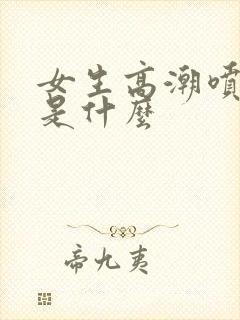 女生高潮噴
是什麼
帝九夷